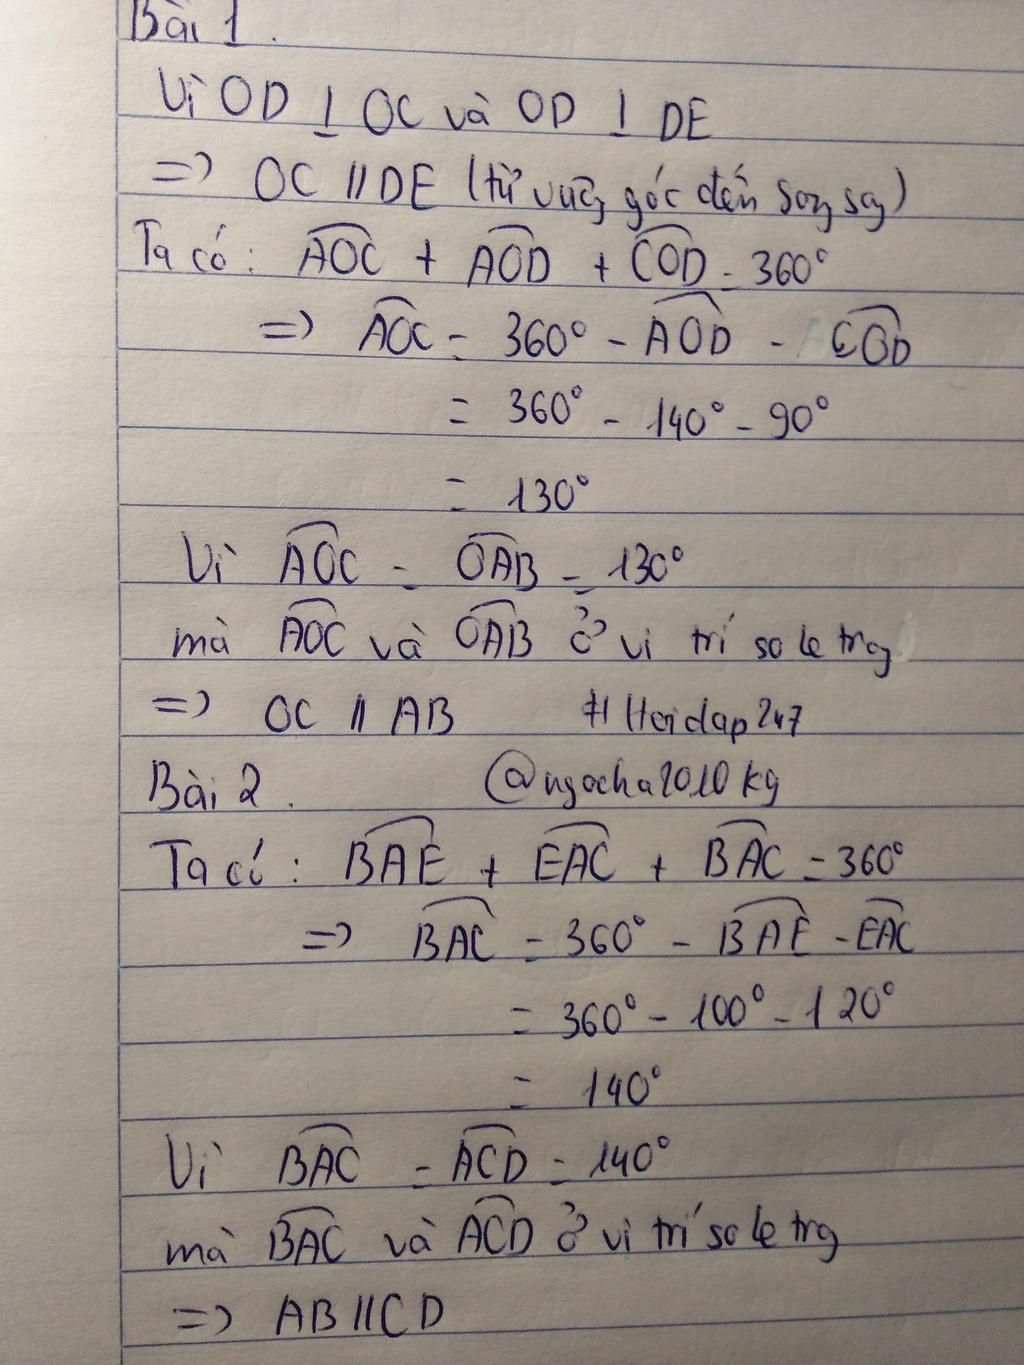 Bài 1.
Vì OD ⊥ OC và OD ⊥ DE
=> OC // DE (từ vuông góc đến song song)
Ta có: AOC + AOD + COD = 360°
=> AOC = 360° - AOD - COD
= 360° - 140° - 90°
= 130°
Vì AOC = OAB = 130°
mà AOC và OAB ở vị trí so le trg
=> OC // AB #Hoidap247
Bài 2. @ngocha2010kg
Ta có: BAE + EAC + BAC = 360°
=> BAC = 360° - BAE - EAC
= 360° - 100° - 120°
= 140°
Vì BAC = ACD = 140°
mà BAC và ACD ở vị trí so le trg
=> AB // CD